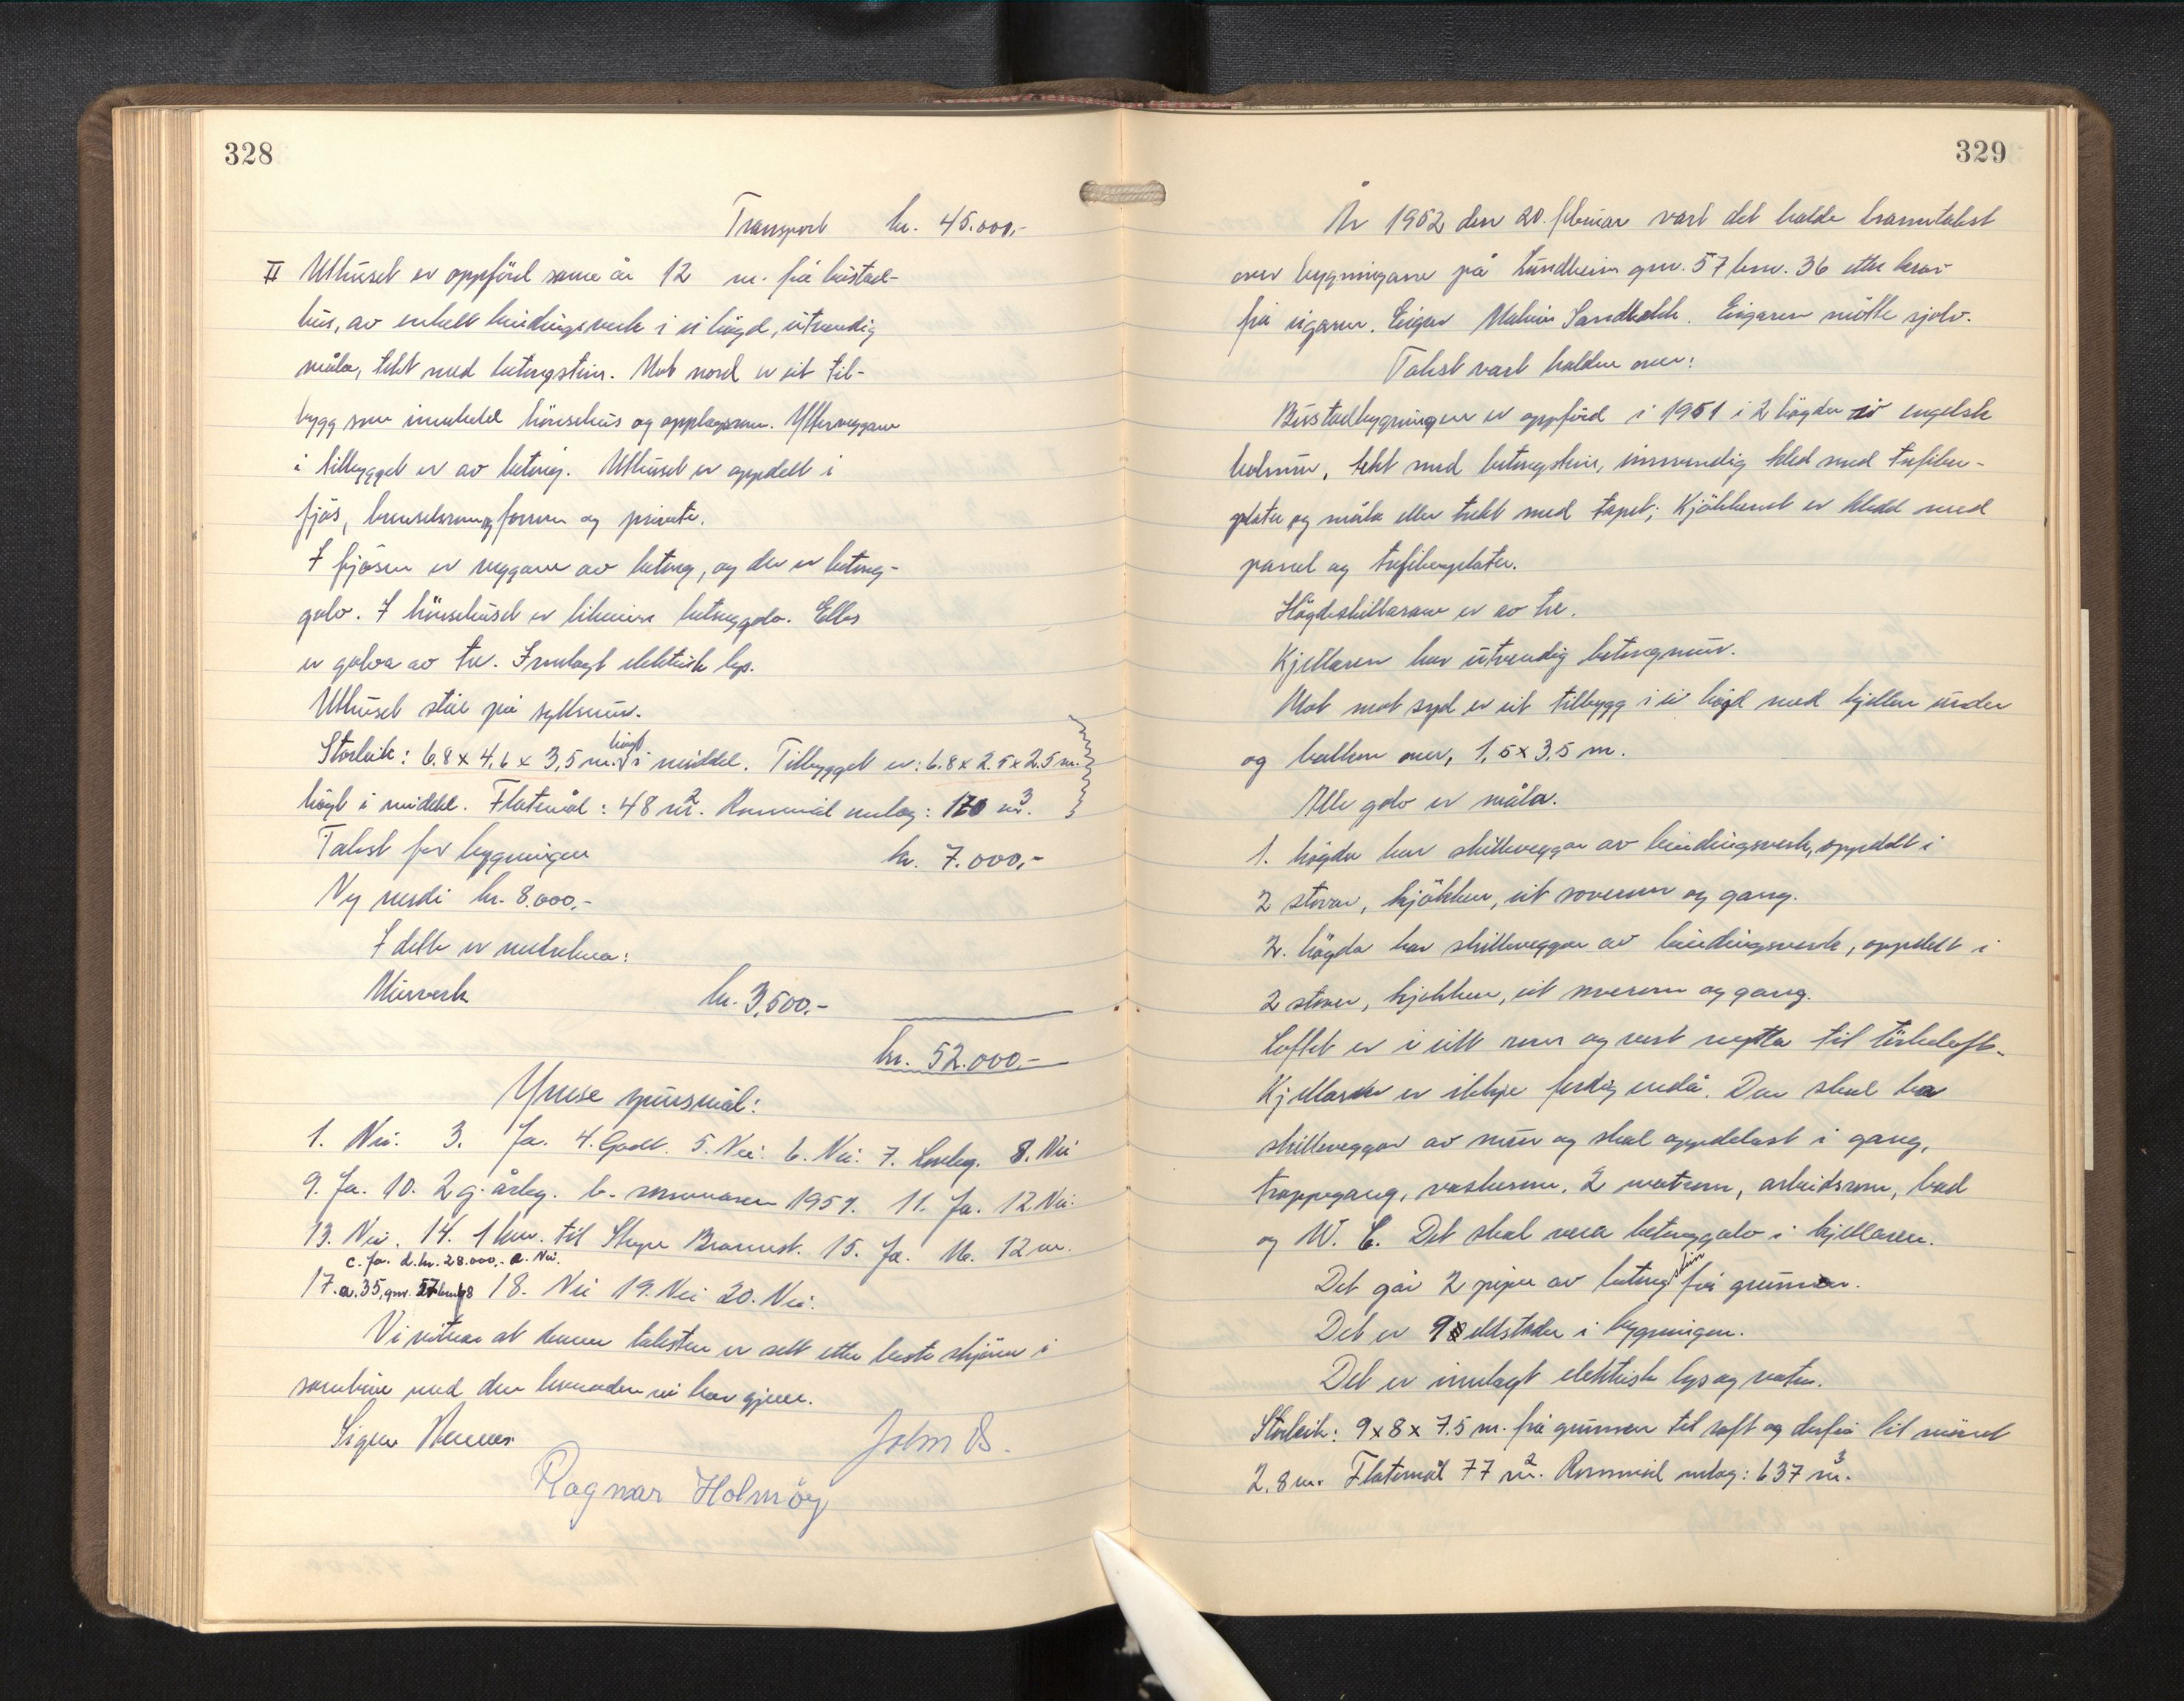 328
Transport kr. 45.000,-
II Uthuset er oppförd same år 12 m. frå bustad-
hus, av enkelt bindingsverk i ei högd, utvendig
måla, tekt med betongstein. Mot nord er eit til-
bygg som inneheld hönsehus og opplagsrom. Ytterveggane
i tilbygget er av betong. Uthuset er oppdelt i
fjös, brenselsrom og privete.
I fjösen er veggane av betong, og der er betong-
golv. I hönsehuset er likeeins betonggolv. Elles
er golva av tre. Innlagt elektrisk lys.
Uthuset står på syllmur.
Storleik: 6,8 x 4,6 x 3,5 m. högt i middel. Tilbygget er: 6.8 x 2.5 x 2.5 m.
högt i middel. Flatemål: 48 m². Rommål umlag: 120 m³.
Takst for bygningen kr. 7.000,-
Ny verdi kr. 8.000,-
I dette er medrekna:
Murverk kr. 3,500,-
kr. 52.000,-
Ymse spursmål:
1. Nei. 3. Ja. 4. Godt. 5. Nei. 6. Nei. 7. Loveleg. 8. Nei
9. Ja. 10. 2 g. årleg. b. sommaren 1951. 11. Ja. 12. Nei.
13. Nei. 14. 1 km. til Brannst. 15. Ja. 16. 12 m.
c. Ja. d. kr. 28.000,- e. Nei.
17. a. 35, gnr. 57 18. Nei 19. Nei 20. Nei.
Vi vitnar at denne taksten er sett etter beste skjönn i
samhöve med den kunnaden vi har gjeve.
Ragnar Holmöy
329
År 1952 den 20. februar vart det halde branntakst
over bygningane på Lundheim gnr. 57 bnr. 36 etter krav
frå eigaren. Eigar Malvin Sandbakk. Eigaren mötte sjolv.
Takst vart halden over:
Bustadbygningen er oppförd i 1951 i 2 högder av engelsk
holmur, tekt med betongstein, innvendig kled med trefiber-
plater og måla eller trekt med tapet; Kjökkenet er kledd med
panel og trefiberplater.
Högdeskillarane er av tre.
Kjellaren har utvendig betongmur.
Mot mot syd er eit tilbygg i ei högd med kjellar under
og balkon over, 1,5 x 3,5 m.
Alle golv er måla.
1. högda har skilleveggar av bindingsverk, oppdelt i
2 stover, kjökken, eit soverom og gang.
2. högda har skilleveggar av bindingsverk, oppdelt i
2 stover, kjökken, eit soverom og gang.
Loftet er i eitt rom og vert nytta til törkeloft.
Kjellaren er ikkje ferdig endå. Den skal ha
skilleveggar av mur og skal oppdelast i gang,
trappegang, vaskerom, 2 matrom, arbeidsrom, bad
og W. C. Det skal vera betonggolv i kjellaren.
Det går 2 piper av betongstein frå grunnen.
Det er 9 eldstader i bygningen.
Det er innlagt elektrisk lys og vatn.
Storleik: 9 x 8 x 7.5 m. frå grunnen til raft og derfrå til mönet
2.8 m. Flatemål 77 m². Rommål umlag: 637 m³.